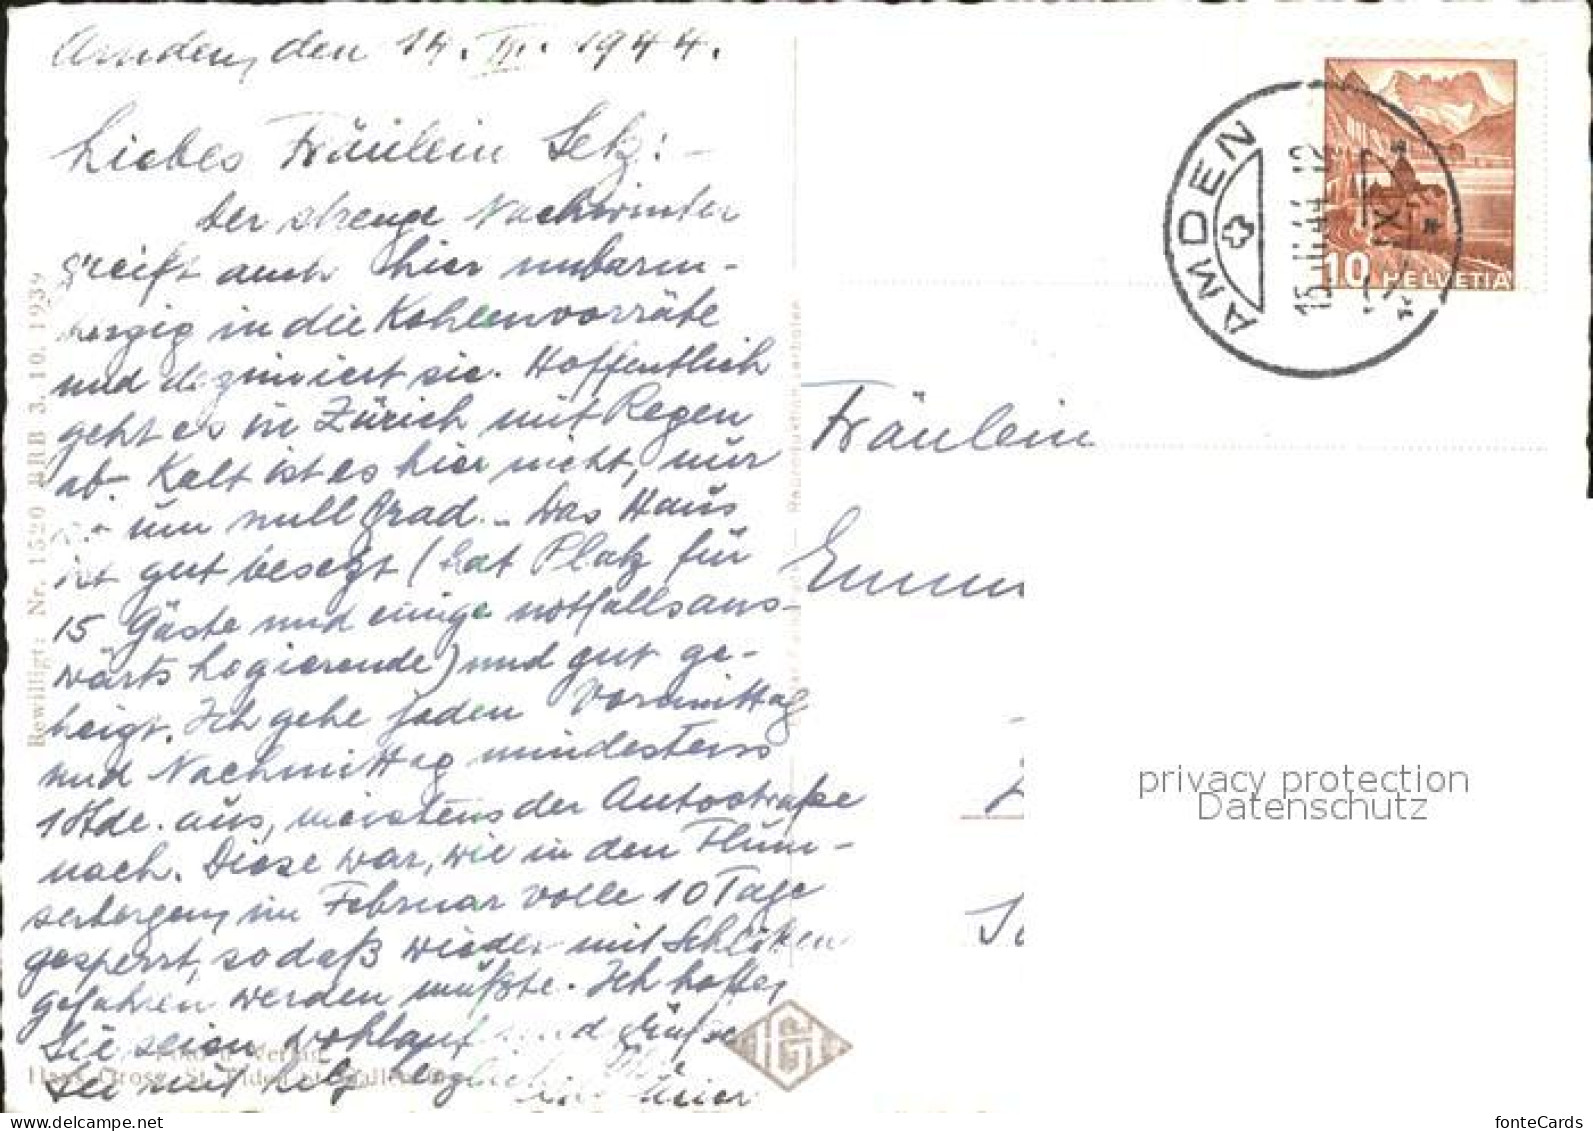 Amden, den 14. III. 1944.
Liebes Fräulein Selz:-
Der strenge Nachwinter
greift auch hier unbarm-
herzig in die Kohlenvorräte
und dezimiert sie. Hoffentlich
geht es in Zürich mit Regen
ab. Kalt ist es hier nicht, nur
um null Grad. - Das Haus
ist gut besetzt (hat Platz für
15 Gäste und einige notfalls aus-
wärts Logierende) und gut ge-
heizt. Ich gehe jeden Vormittag
und Nachmittag mindestens
1 Stde. aus, meistens der Autostraße
nach. Diese war, wie in den Flum-
serbergen, im Februar volle 10 Tage
gesperrt, sodaß wieder mit Schlitten
gefahren werden mußte. Ich hoffe,
Sie seien wohlauf und grüße
Sie mit
Meier
Bewilligt: Nr. 1520 BRB 3. 10. 1939
Foto u. Verlag
Hans Gross, St. Fiden-St. Gallen
Reproduktion verboten
HGH
AMDEN
15.III.44 12
10 HELVETIA
Fräulein
privacy protection
Datenschutz
www.delcampe.net
fonteCards